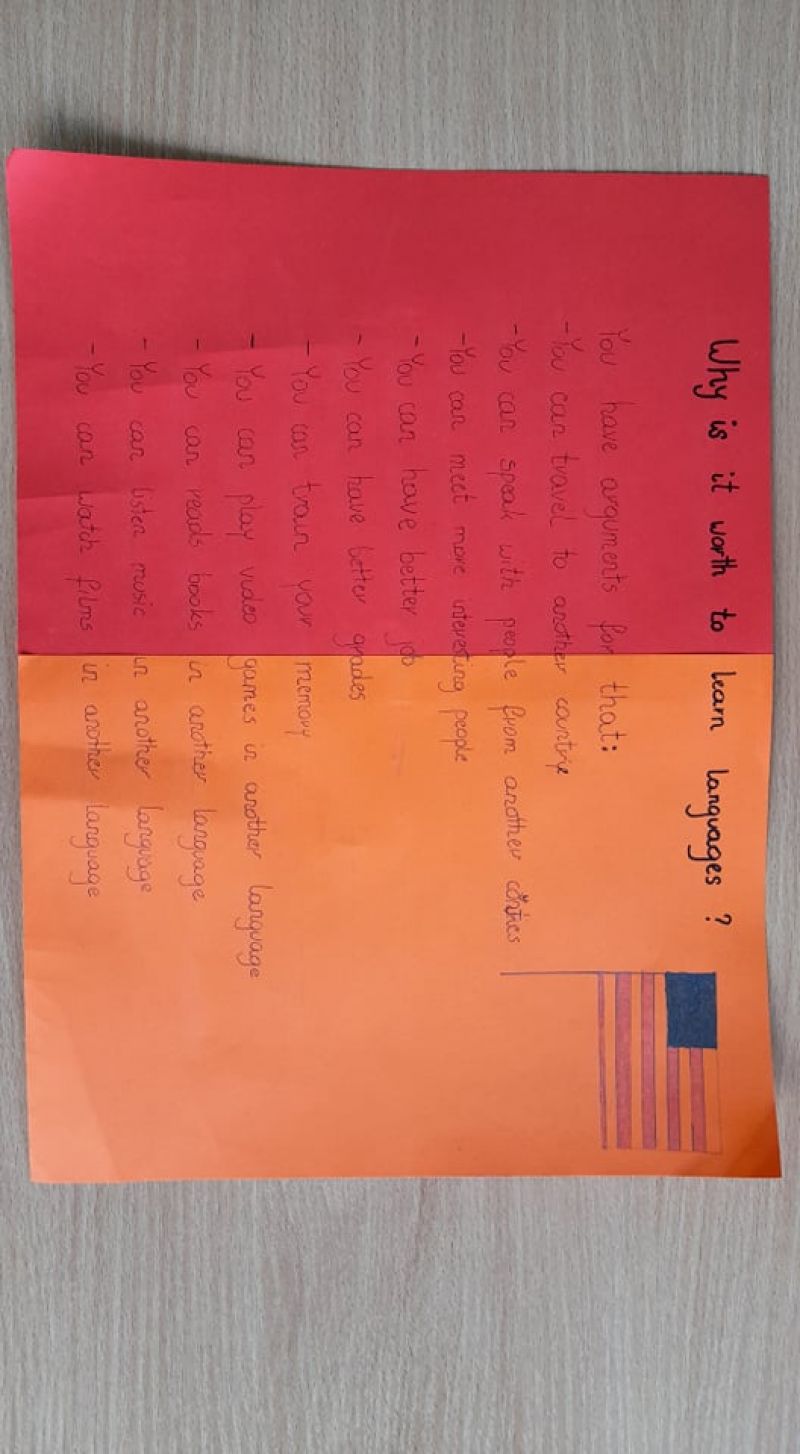 Why is it worth to learn languages ?
You have arguments for that:
- You can travel to another
- You can speak with people from another
- You can meet more interesting people
- You can have better job
- You can have better grades
- You can train your memory
- You can play video games in another language
- You can reads books in another language
- You can listen music in another language
- You can watch films in another language